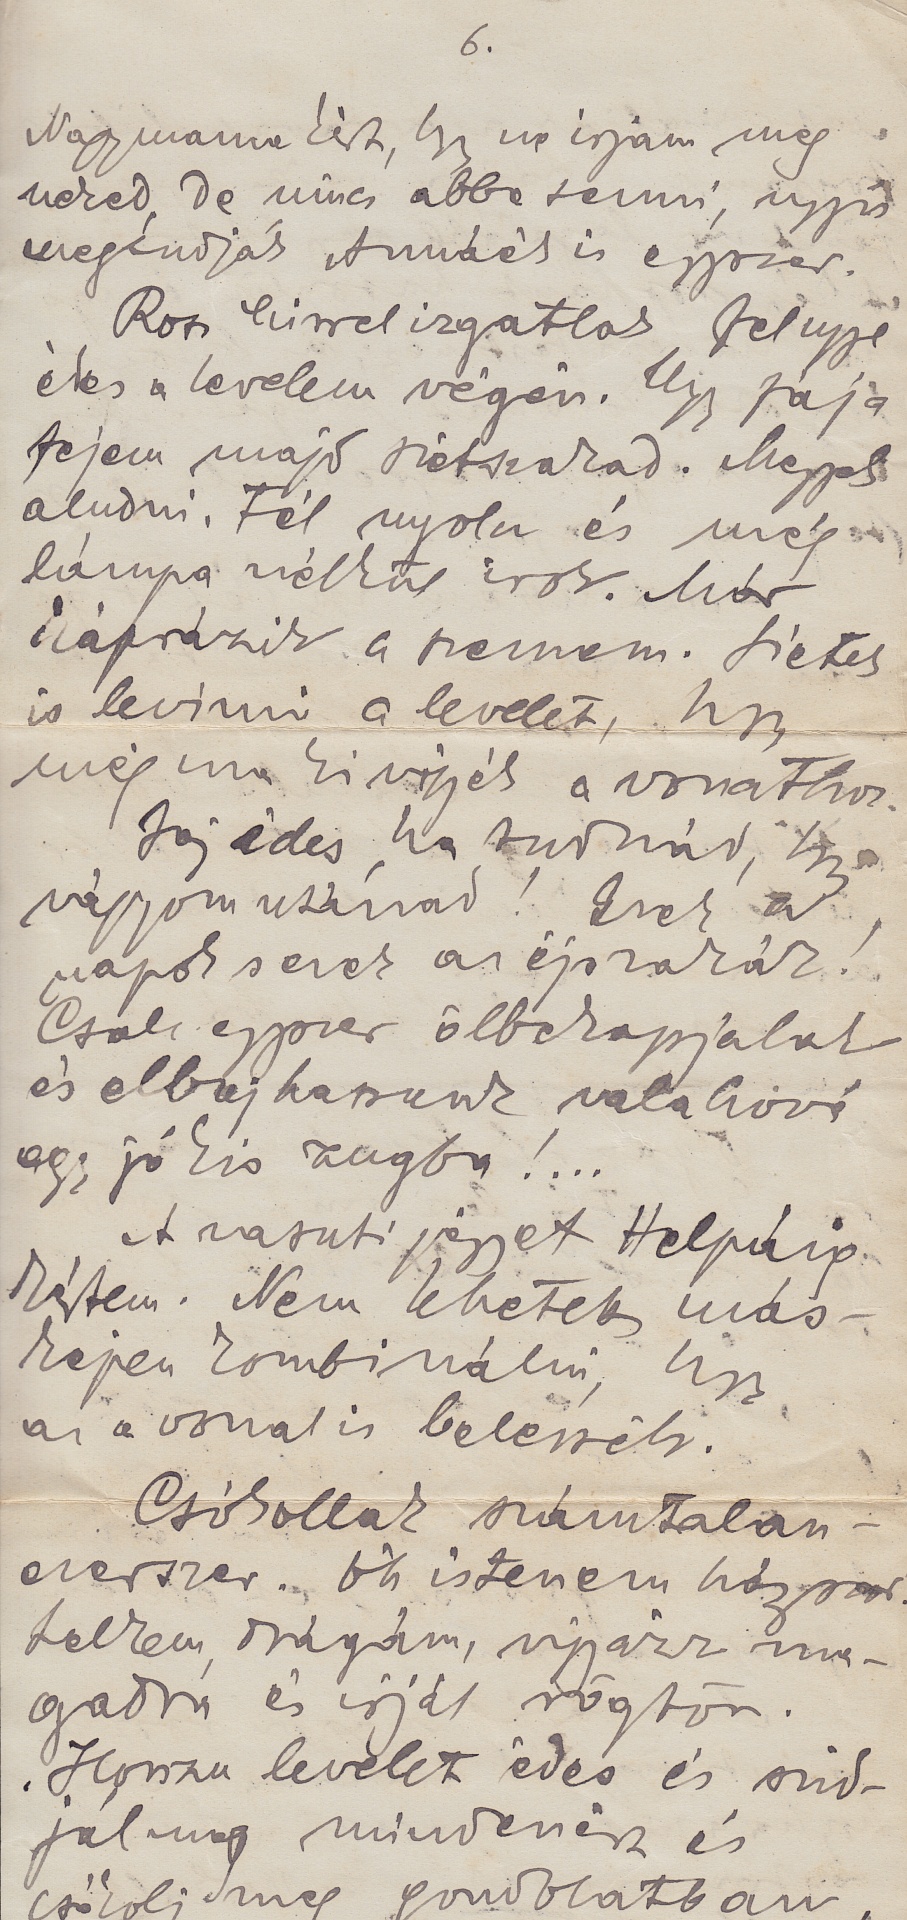 6.
Nagymama kért, hgy ne irjam meg
neked, de nincs abba semmi, ugyis
megtudják Annáék is egyszer.
Rossz hirrel izgatlak, fel ugye
édes a levelem végén. Ugy fáj a
fejem majd szétszakad. Megyek
aludni. Fél nyolc és még
lámpa nélkül irok. Már
káprázik a szemem. Sietek
is levinni a levelet, hgy
még ma ki vigyék a vonathoz.
Jaj édes, ha tudnád, hgy
vágyom utánad! Ezek a
napok s ezek az éjszakák!
Csak egyszer ölbekapjalak
és elbujhassunk valahová
egy jó kis zugba!...
A vasuti jegyet Helpáig
kértem. Nem lehetett más-
képen kombinálni, hgy
az a vonal is beleessék.
Csókollak számtalan-
ezerszer. Óh istenem
lelkem, drágám, vigyázz ma-
gadra és irjál rögtön.
Hosszu levelet édes és szid-
jál meg mindenért és
csókolj meg gondolatban,